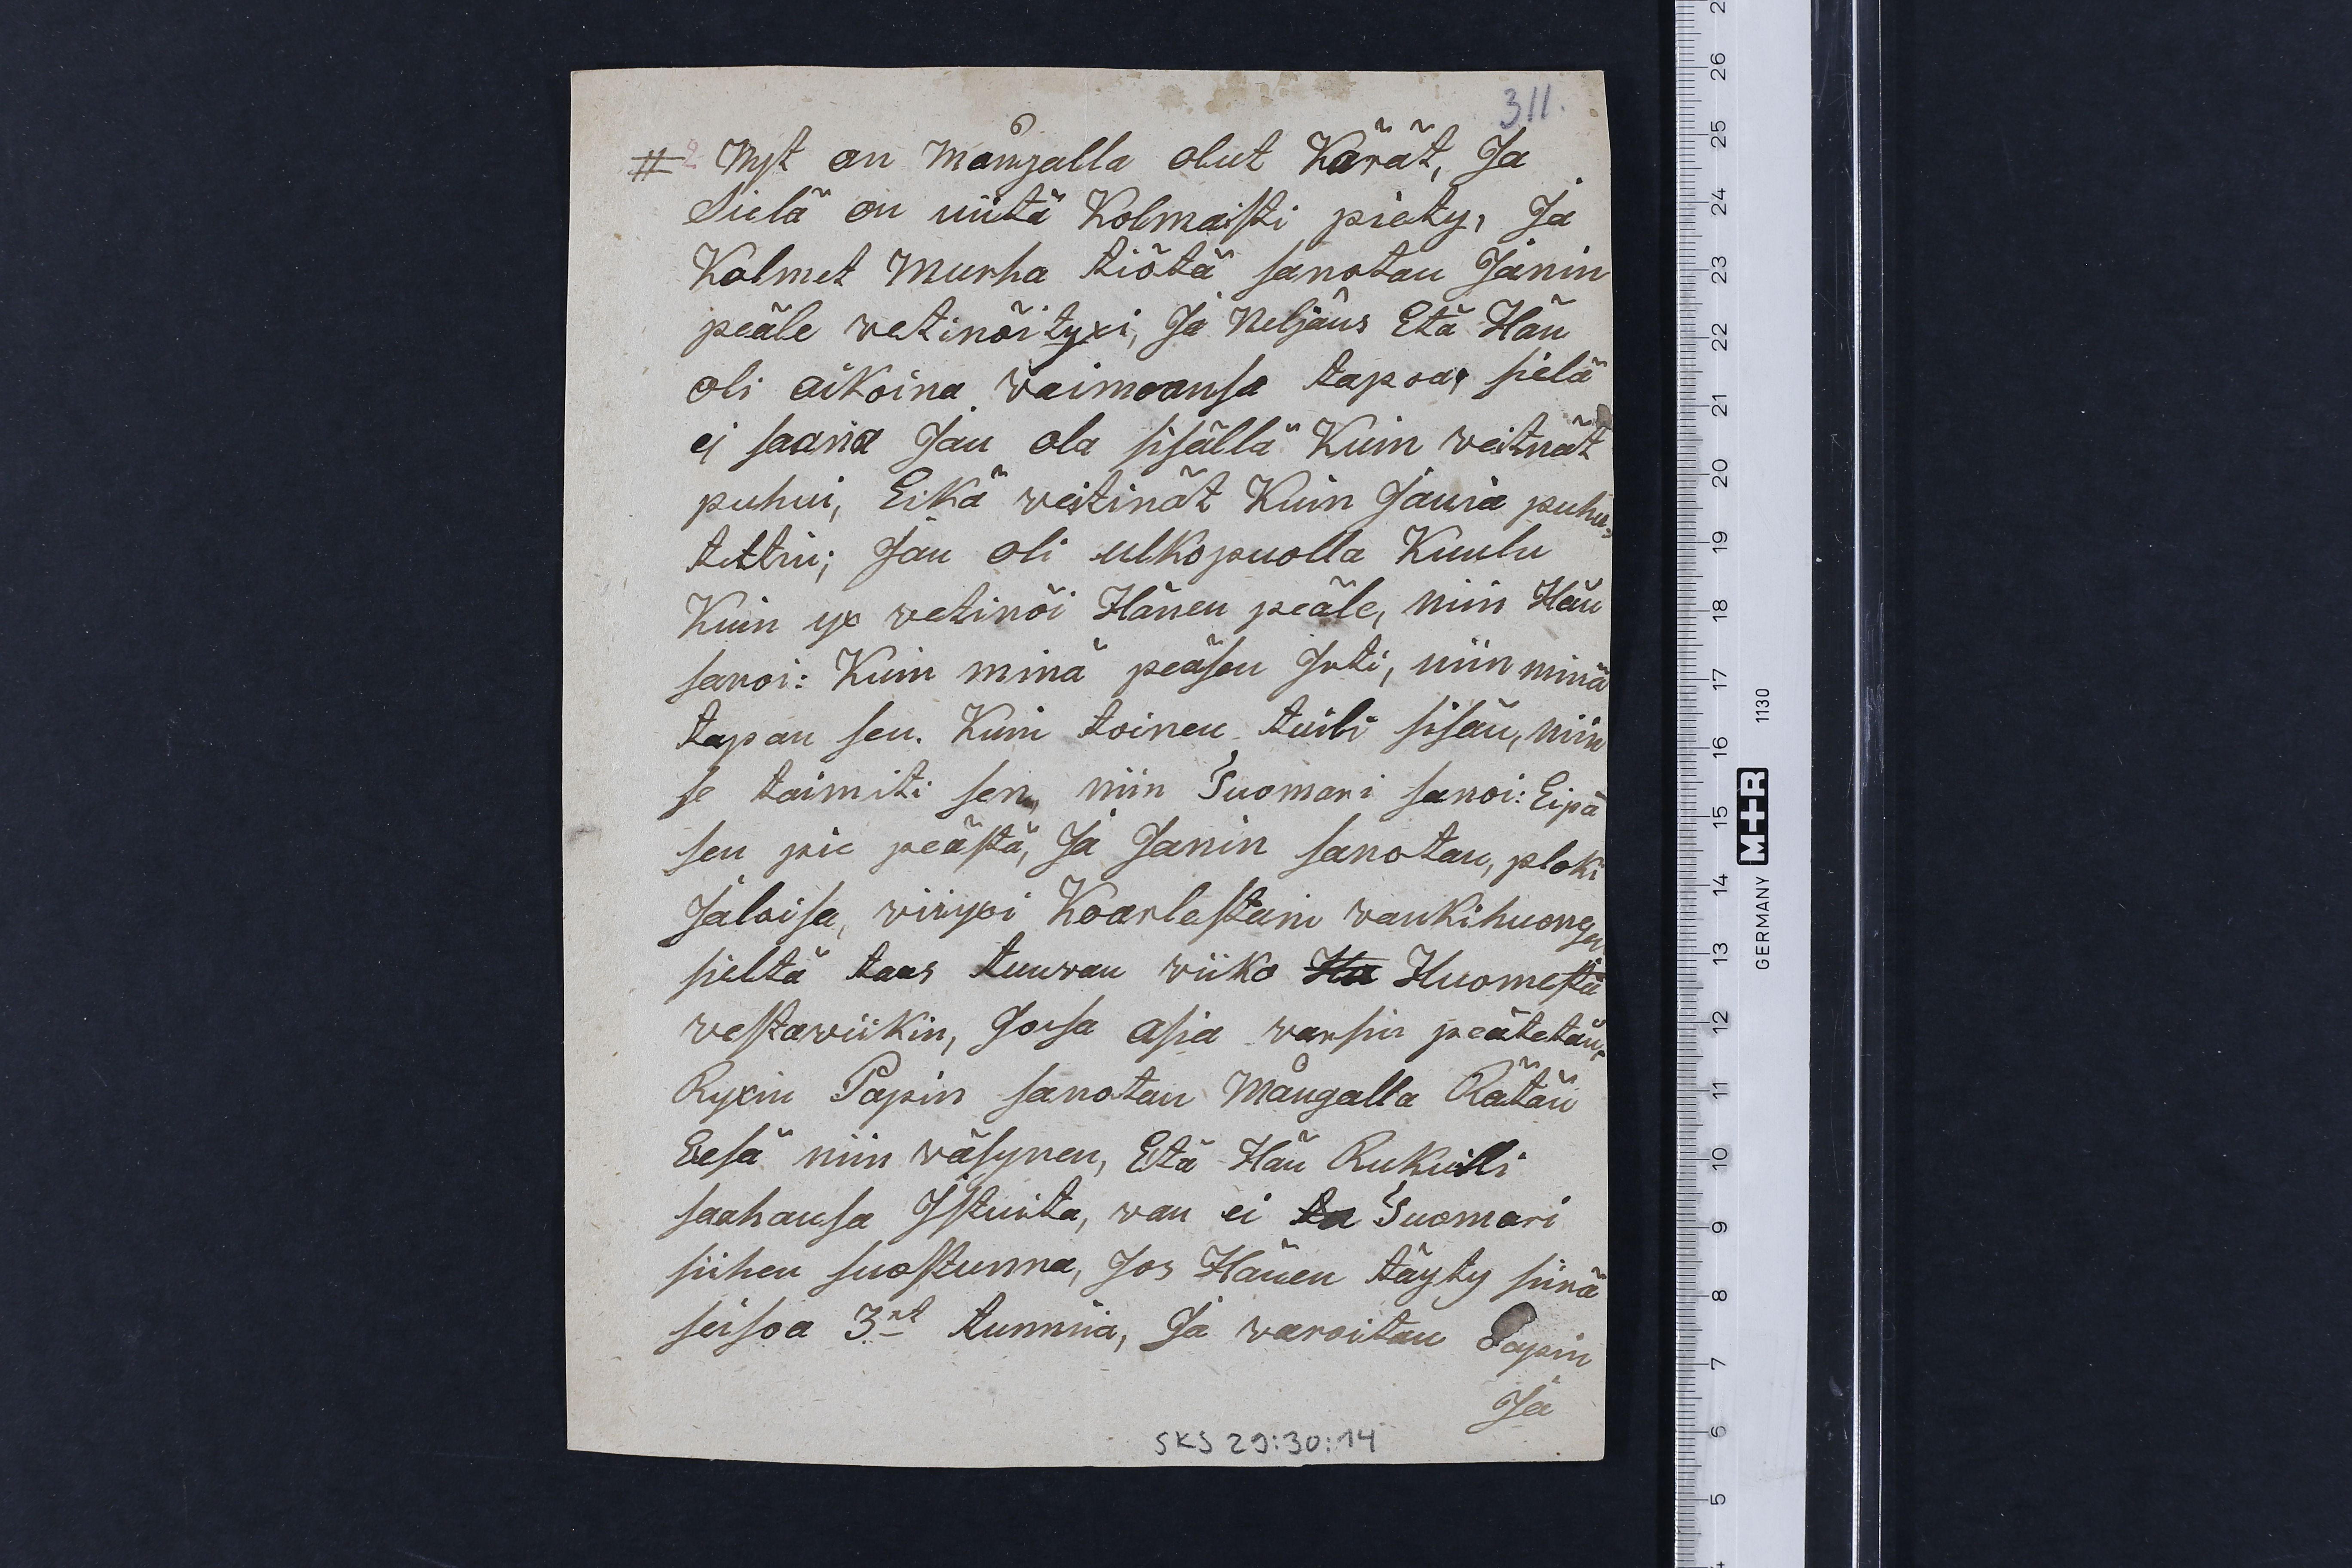 311.
# 2 Nyt on Mångalla olut Käröt, Ja
Sielä on niitä Kolmaisti piety, Ja
Kolmet Murha tiötä sanotan Janin
peäle vetinöityxi, Ja Neljäns Etä Hän
oli aikoina vaimoansa tapoa, sielä
ej saana Jan ola sisällä Kuin veitnät
puhui, Eikä veitinät Kuin Jania puhu-
tettiin; Jan oli ulkopuolla Kuulu
Kuin yx vetinöi Hänen peäle, niin Hän
sanoi: Kuin minä peäsen Irti, niin minä
tapan sen. Kuin toinen tuili sisän, niin
se toimiti sen, niin Tuomari sanoi: Eipä
sen pie peästä, Ja Janin sanotan, ploki
Jaloisa, viiyxi Koarlestani vankihuongen
pieltä taas tuuvan viiko Huomesta
vestaviikin, Joisa asia varsin peätetän,
Ryxin Papin sanotan Mångalla Rätän
Eesä niin väsynen, Etä Hän Rukuili
saahansa Istuita, van ei Tuomari
siihen suostunna, Jos Hänen täyty siinä
seisoa 3nt tunnia, Ja varoitan Papin
Ja
SKS 29:30:14
26
25
24
23
22
21
20
19
18
17
16
15
14
13
12
11
10
9
8
7
6
5
GERMANY M+R 1130